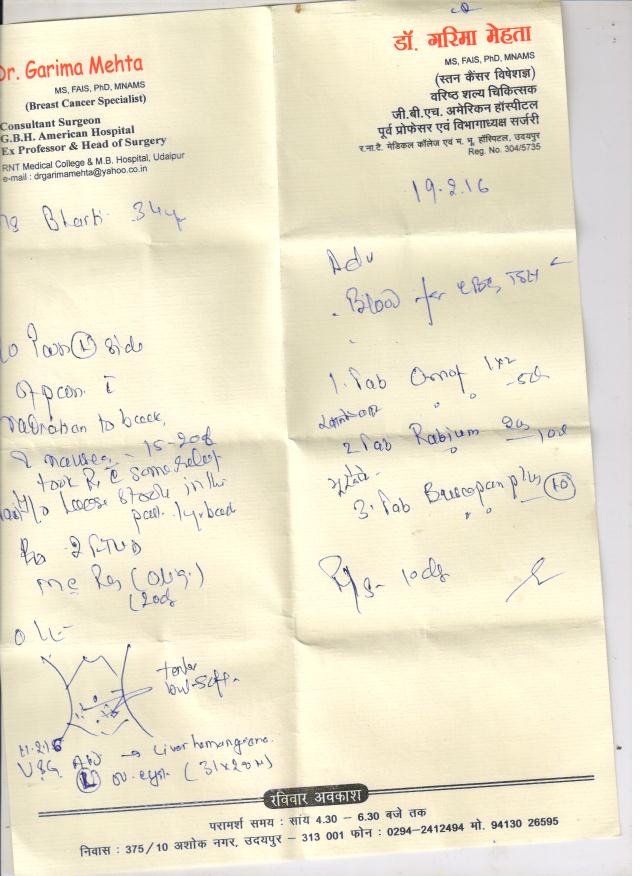 Dr. Garima Mehta
MS, FAIS, PhD, MNAMS
(Breast Cancer Specialist)
Consultant Surgeon
G.B.H. American Hospital
Ex Professor & Head of Surgery
RNT Medical College & M.B. Hospital, Udaipur
e-mail : drgarimamehta@yahoo.co.in
Bharti 34y
Pain (L) side
radiation to back
nausea - 15-20d
took Rx c some relief
H/o Loose stools in the
past 1 yr back
2 FTND
mc Reg (Olig.)
(20d
O/E-
tender
11.2.16
USG Abd → Liver hemangioma.
(L) ov. cyst. (31x20
डॉ. गरिमा मेहता
MS, FAIS, PhD, MNAMS
(स्तन कैंसर विषेशज्ञ)
वरिष्ठ शल्य चिकित्सक
जी.बी.एच. अमेरिकन हॉस्पीटल
पूर्व प्रोफेसर एवं विभागाध्यक्ष सर्जरी
र.ना.टै. मेडिकल कॉलेज एवं म. भू. हॉस्पिटल, उदयपुर
Reg. No. 304/5735
19.2.16
Adv
. Blood for CBC, TSH
1. Tab 1x2
- 5d
2 Tab Rabium 20
10d
3. Tab Buscopan plus (10)
R/s - 10d
रविवार अवकाश
परामर्श समय : सांय 4.30 - 6.30 बजे तक
निवास : 375/10 अशोक नगर, उदयपुर - 313 001 फोन : 0294-2412494 मो. 94130 26595